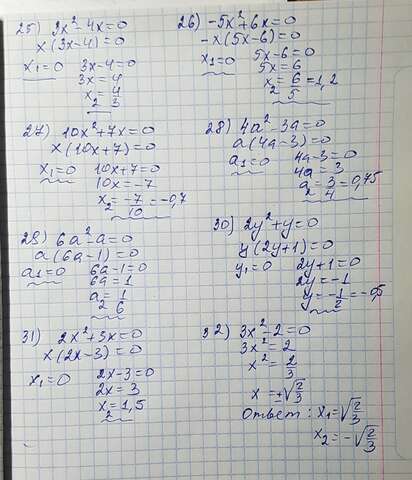 25) 3x²-4x=0
x(3x-4)=0
x₁=0 3x-4=0
3x=4
x₂=4/3
26) -5x²+6x=0
-x(5x-6)=0
x₁=0 5x-6=0
5x=6
x₂=6/5=1,2
27) 10x²+7x=0
x(10x+7)=0
x₁=0 10x+7=0
10x=-7
x₂=-7/10=-0,7
28) 4a²-3a=0
a(4a-3)=0
a₁=0 4a-3=0
4a=3
a₂=3/4=0,75
29) 6a²-a=0
a(6a-1)=0
a₁=0 6a-1=0
6a=1
a₂=1/6
30) 2y²+y=0
y(2y+1)=0
y₁=0 2y+1=0
2y=-1
y=-1/2=-0,5
31) 2x²+3x=0
x(2x-3)=0
x₁=0 2x-3=0
2x=3
x₂=1,5
32) 3x²-2=0
3x²=2
x²=2/3
x=±√2/3
Ответ: x₁=√2/3
x₂=-√2/3